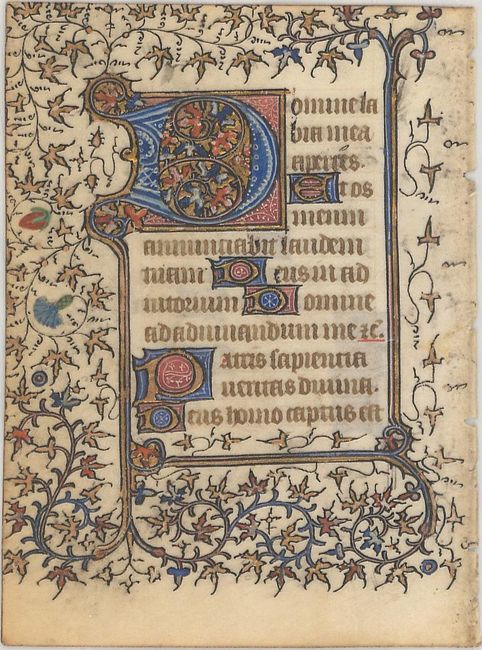 Domine la
bia mea
aperies.
Et os
meum
annunciabit laudem
tuam Deus in ad
iutorium Domine
ad adiuuandum me ꝛc.
Patris sapientia
ueritas diuina.
Deus homo captus est